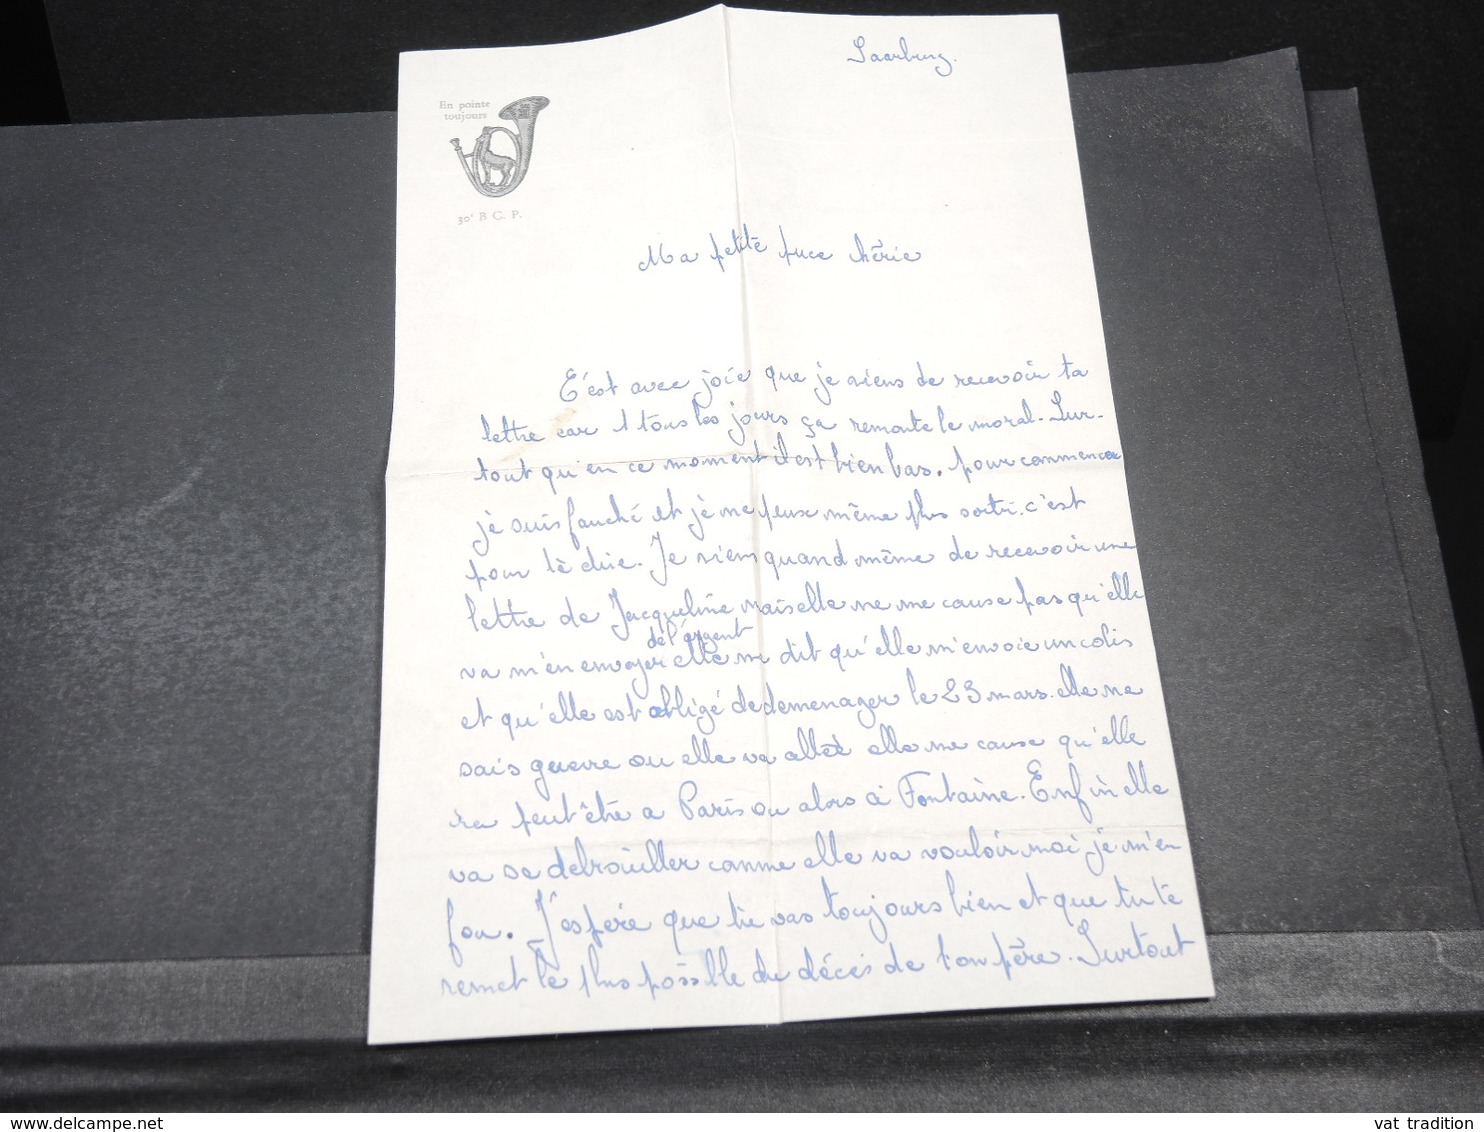 Saarburg.
En pointe
toujours
30e B C. P.
Ma petite puce chérie
C'est avec joie que je viens de recevoir ta
lettre car 1 tous les jours ça remonte le moral. Sur-
tout qu'en ce moment il est bien bas. pour commencer
je suis fauché et je ne peux même plus sortir. c'est
pour te dire. Je viens quand même de recevoir une
lettre de Jacqueline Mais elle ne me cause pas qu'elle
de l'argent
va m'en envoyer elle me dit qu'elle m'envoie un colis
et qu'elle est obligé de demenager le 23 mars. elle ne
sais guerre ou elle va allez elle me cause qu'elle
ira peut être a Paris ou alors à Fontaine. Enfin elle
va se debrouiller comme elle va vouloir moi je m'en
fou. J'espère que tu vas toujours bien et que tu te
remet le plus possible du décés de ton père. Surtout
vat tradition
www.delcampe.net